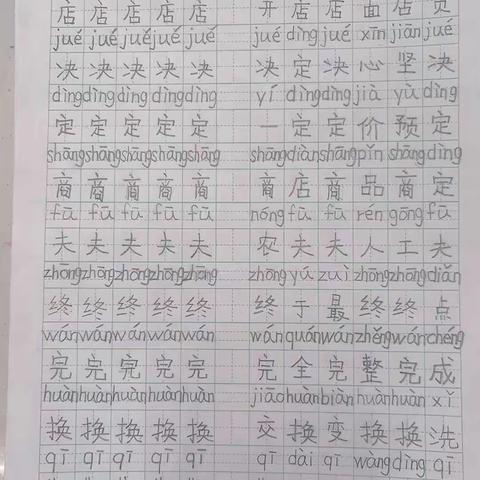 店 店 店 店 店 开 店 面 店 员
jué jué jué jué jué jué dìng jué xīn jiān jué
决 决 决 决 决 决 定 决 心 坚 决
dìng dìng dìng dìng dìng yí dìng dìng jià yù dìng
定 定 定 定 定 一 定 定 价 预 定
shāng shāng shāng shāng shāng shāng diàn shāng pǐn shāng dìng
商 商 商 商 商 商 店 商 品 商 定
fū fū fū fū fū nóng fū fū rén gōng fū
夫 夫 夫 夫 夫 农 夫 夫 人 工 夫
zhōng zhōng zhōng zhōng zhōng zhōng yú zuì zhōng zhōng diǎn
终 终 终 终 终 终 于 最 终 终 点
wán wán wán wán wán wán quán wán zhěng wán chéng
完 完 完 完 完 完 全 完 整 完 成
huàn huàn huàn huàn huàn jiāo huàn biàn huàn huàn xǐ
换 换 换 换 换 交 换 变 换 换 洗
qī qī qī qī qī qī dài qī wàng dìng qī